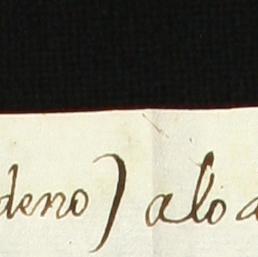 deno) alo a